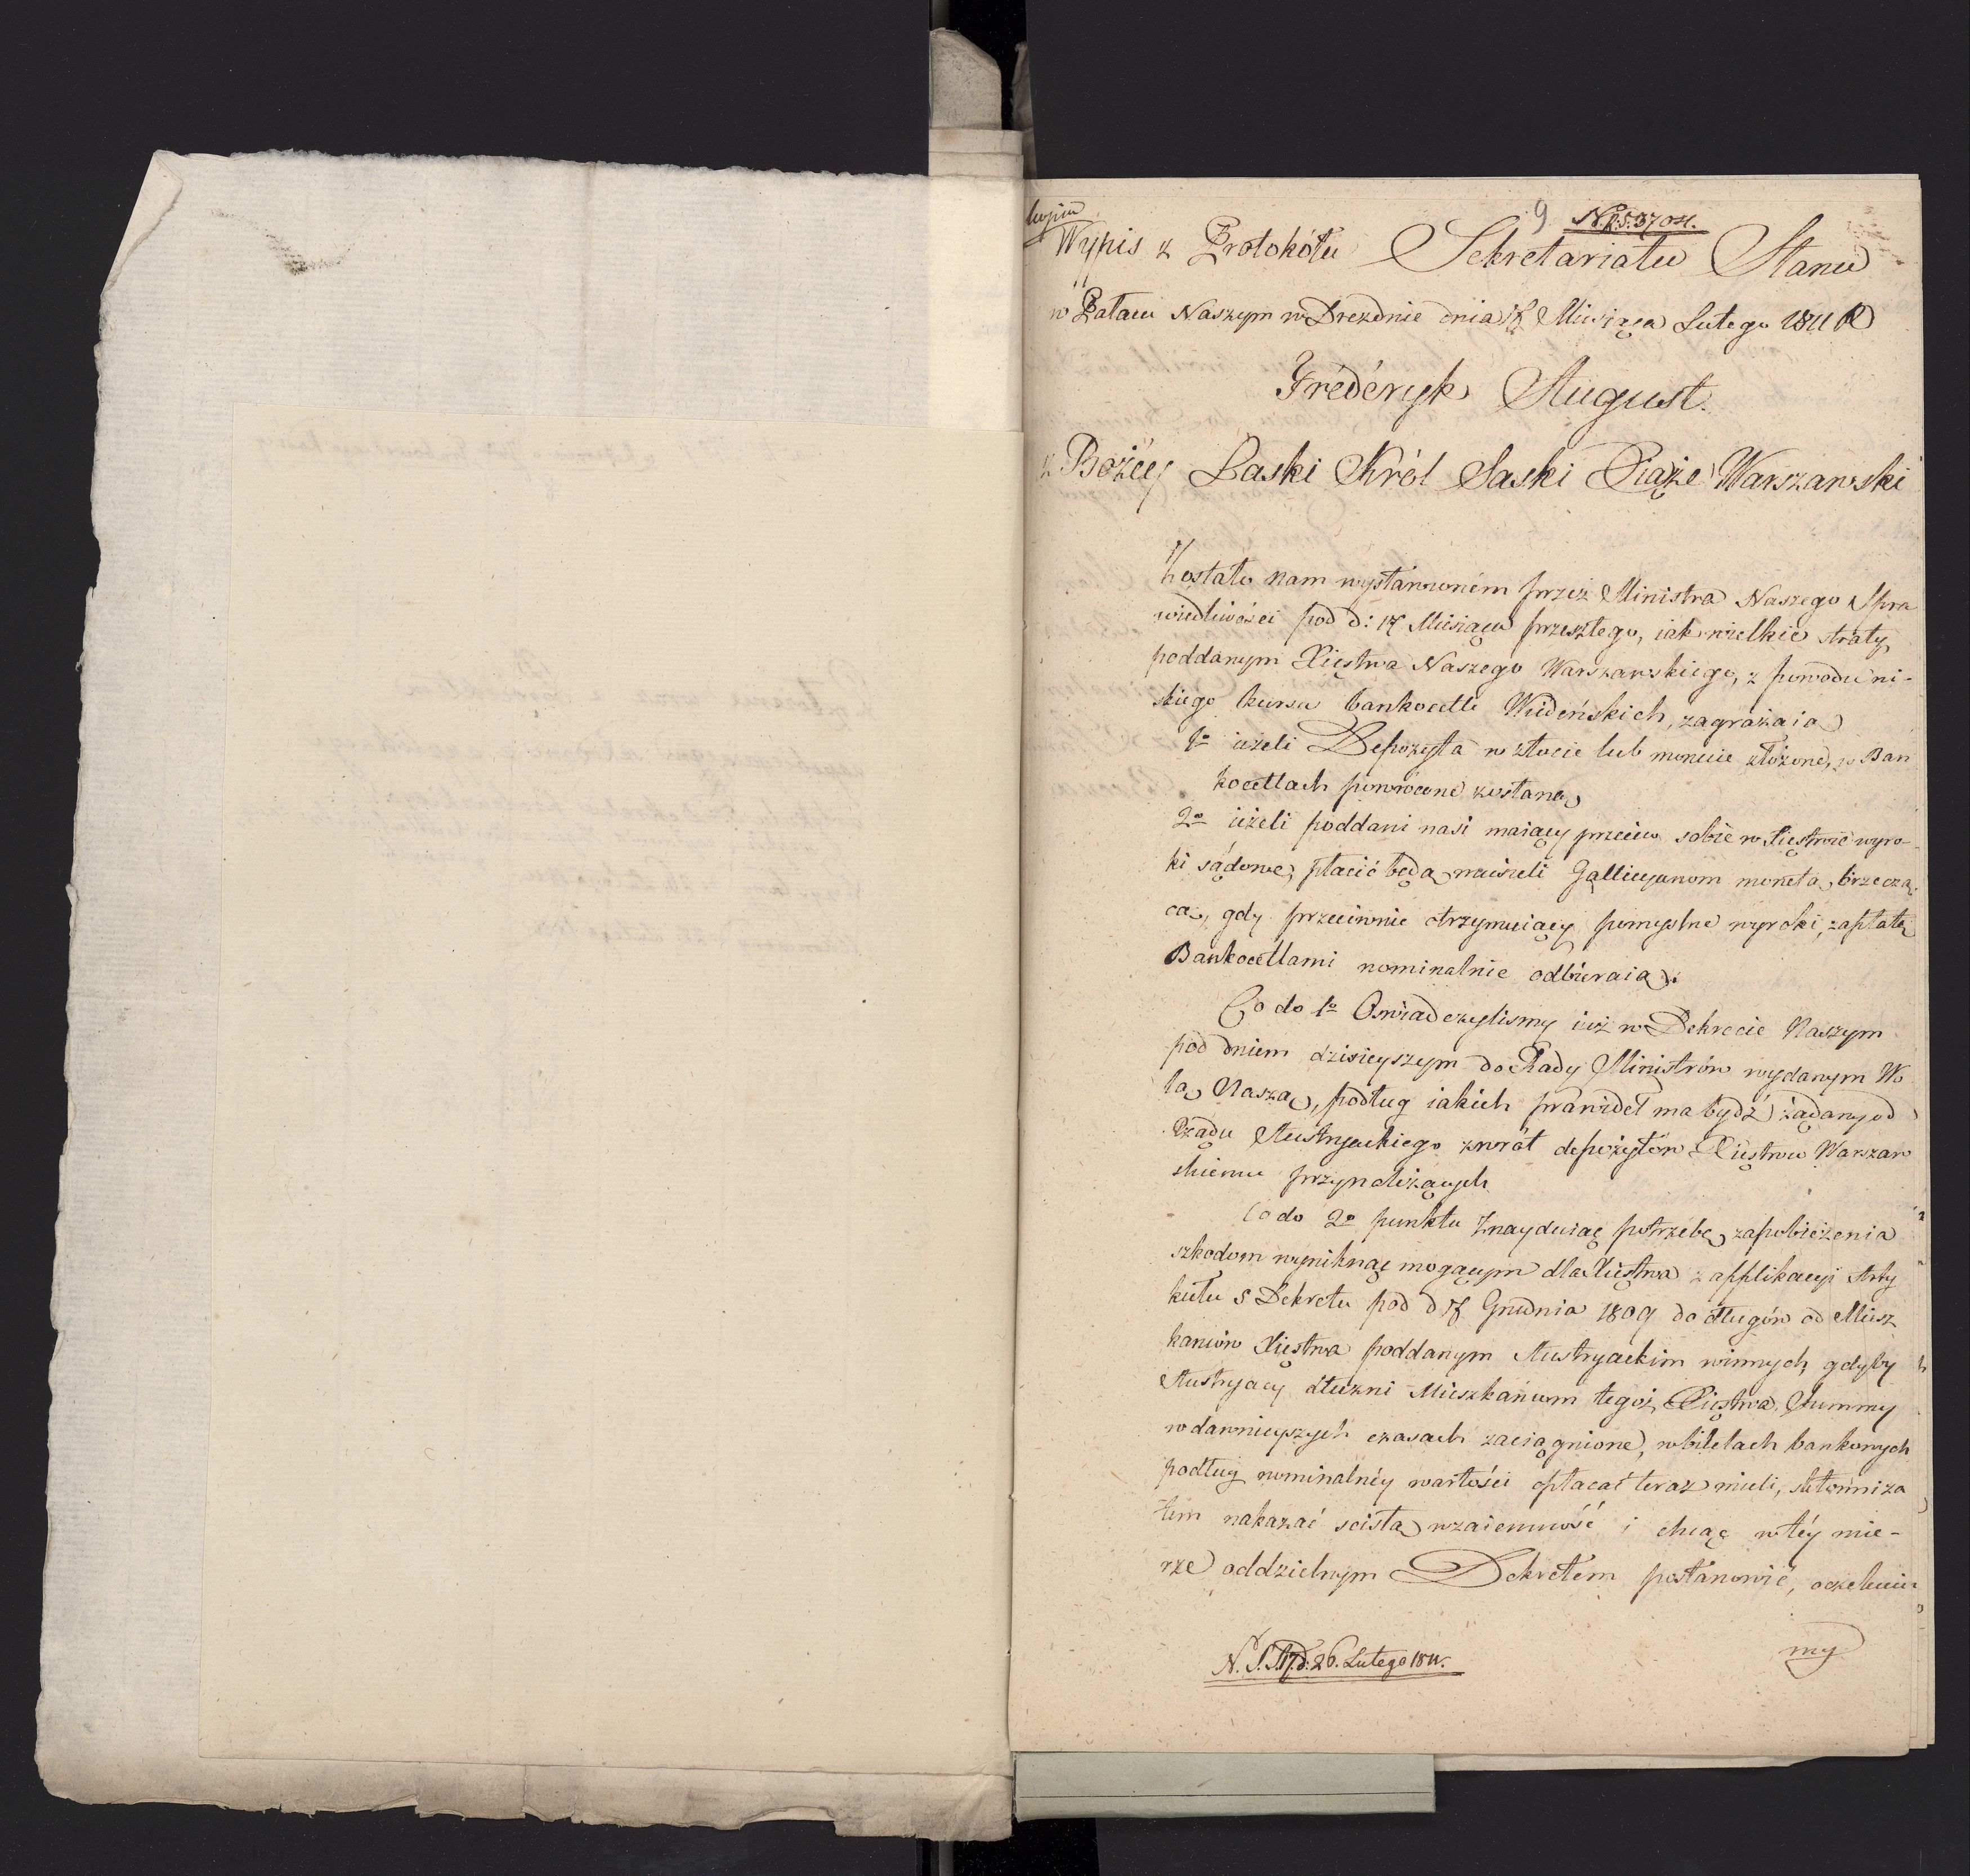 kopia
9
Wypis z Protokółu Sekretariatu Stanu
w Pałacu Naszym w Dreznie dnia Miesiąca Lutego 1811 R
Fréderyk August.
z Bożey Łaski Król Saski Xiąże Warszawski
Zostało nam wystawioném przez Ministra Naszego Spra
wiedliwości pod d: Miesiąca przeszłego, iak wielkie straty
poddanym Xięstwa Naszego Warszawskiego, z powodu ni-
skiego kursu bankocetli Wiedeńskich, zagrażaią
1o ieżeli Depozyta w złocie lub monecie złożone, w Ban
kocetlach powrócone zostaną
2o ieżeli poddani nasi maiący przeciw sobie w Xięstwie wyro-
ki sądowe, płacić będą musieli Gallicyanom monetą brzęczą-
cą, gdy przeciwnie otrzymuiący pomyślne wyroki, zapłatę
Bankocetlami nominalnie odbieraią.
Co do 1o Oswiadczylismy iuż w Dekrecie Naszym
pod dniem dzisieyszym do Rady Ministrów wydanym Wo
lą Naszą, podług iakich prawideł ma bydź żądany od
Rządu Austryackiego zwrót depozytów Xięstwu Warszaw
skiemu przynależących
Co do 2o punktu Znayduiąc potrzebę zapobieżenia
szkodom wyniknąć mogącym dla Xięstwa z applikacyi Arty
kułu 5 Dekretu pod d Grudnia 1809 do długów od Miesz
kańców Xięstwa poddanym Austryackim winnych, gdyby
Austryacy dłużni Mieszkańcom tegoż Xięstwa Summy
w dawnieyszych czasach zaciągnione, w biletach bankowych
podług nominalnéy wartości opłacać teraz mieli,
tem nakazać scisłą wzaiemność i chcąc w téy mie-
rze oddzielnym Dekretem postanowić, oczekuie
my
26. Lutego 1811.